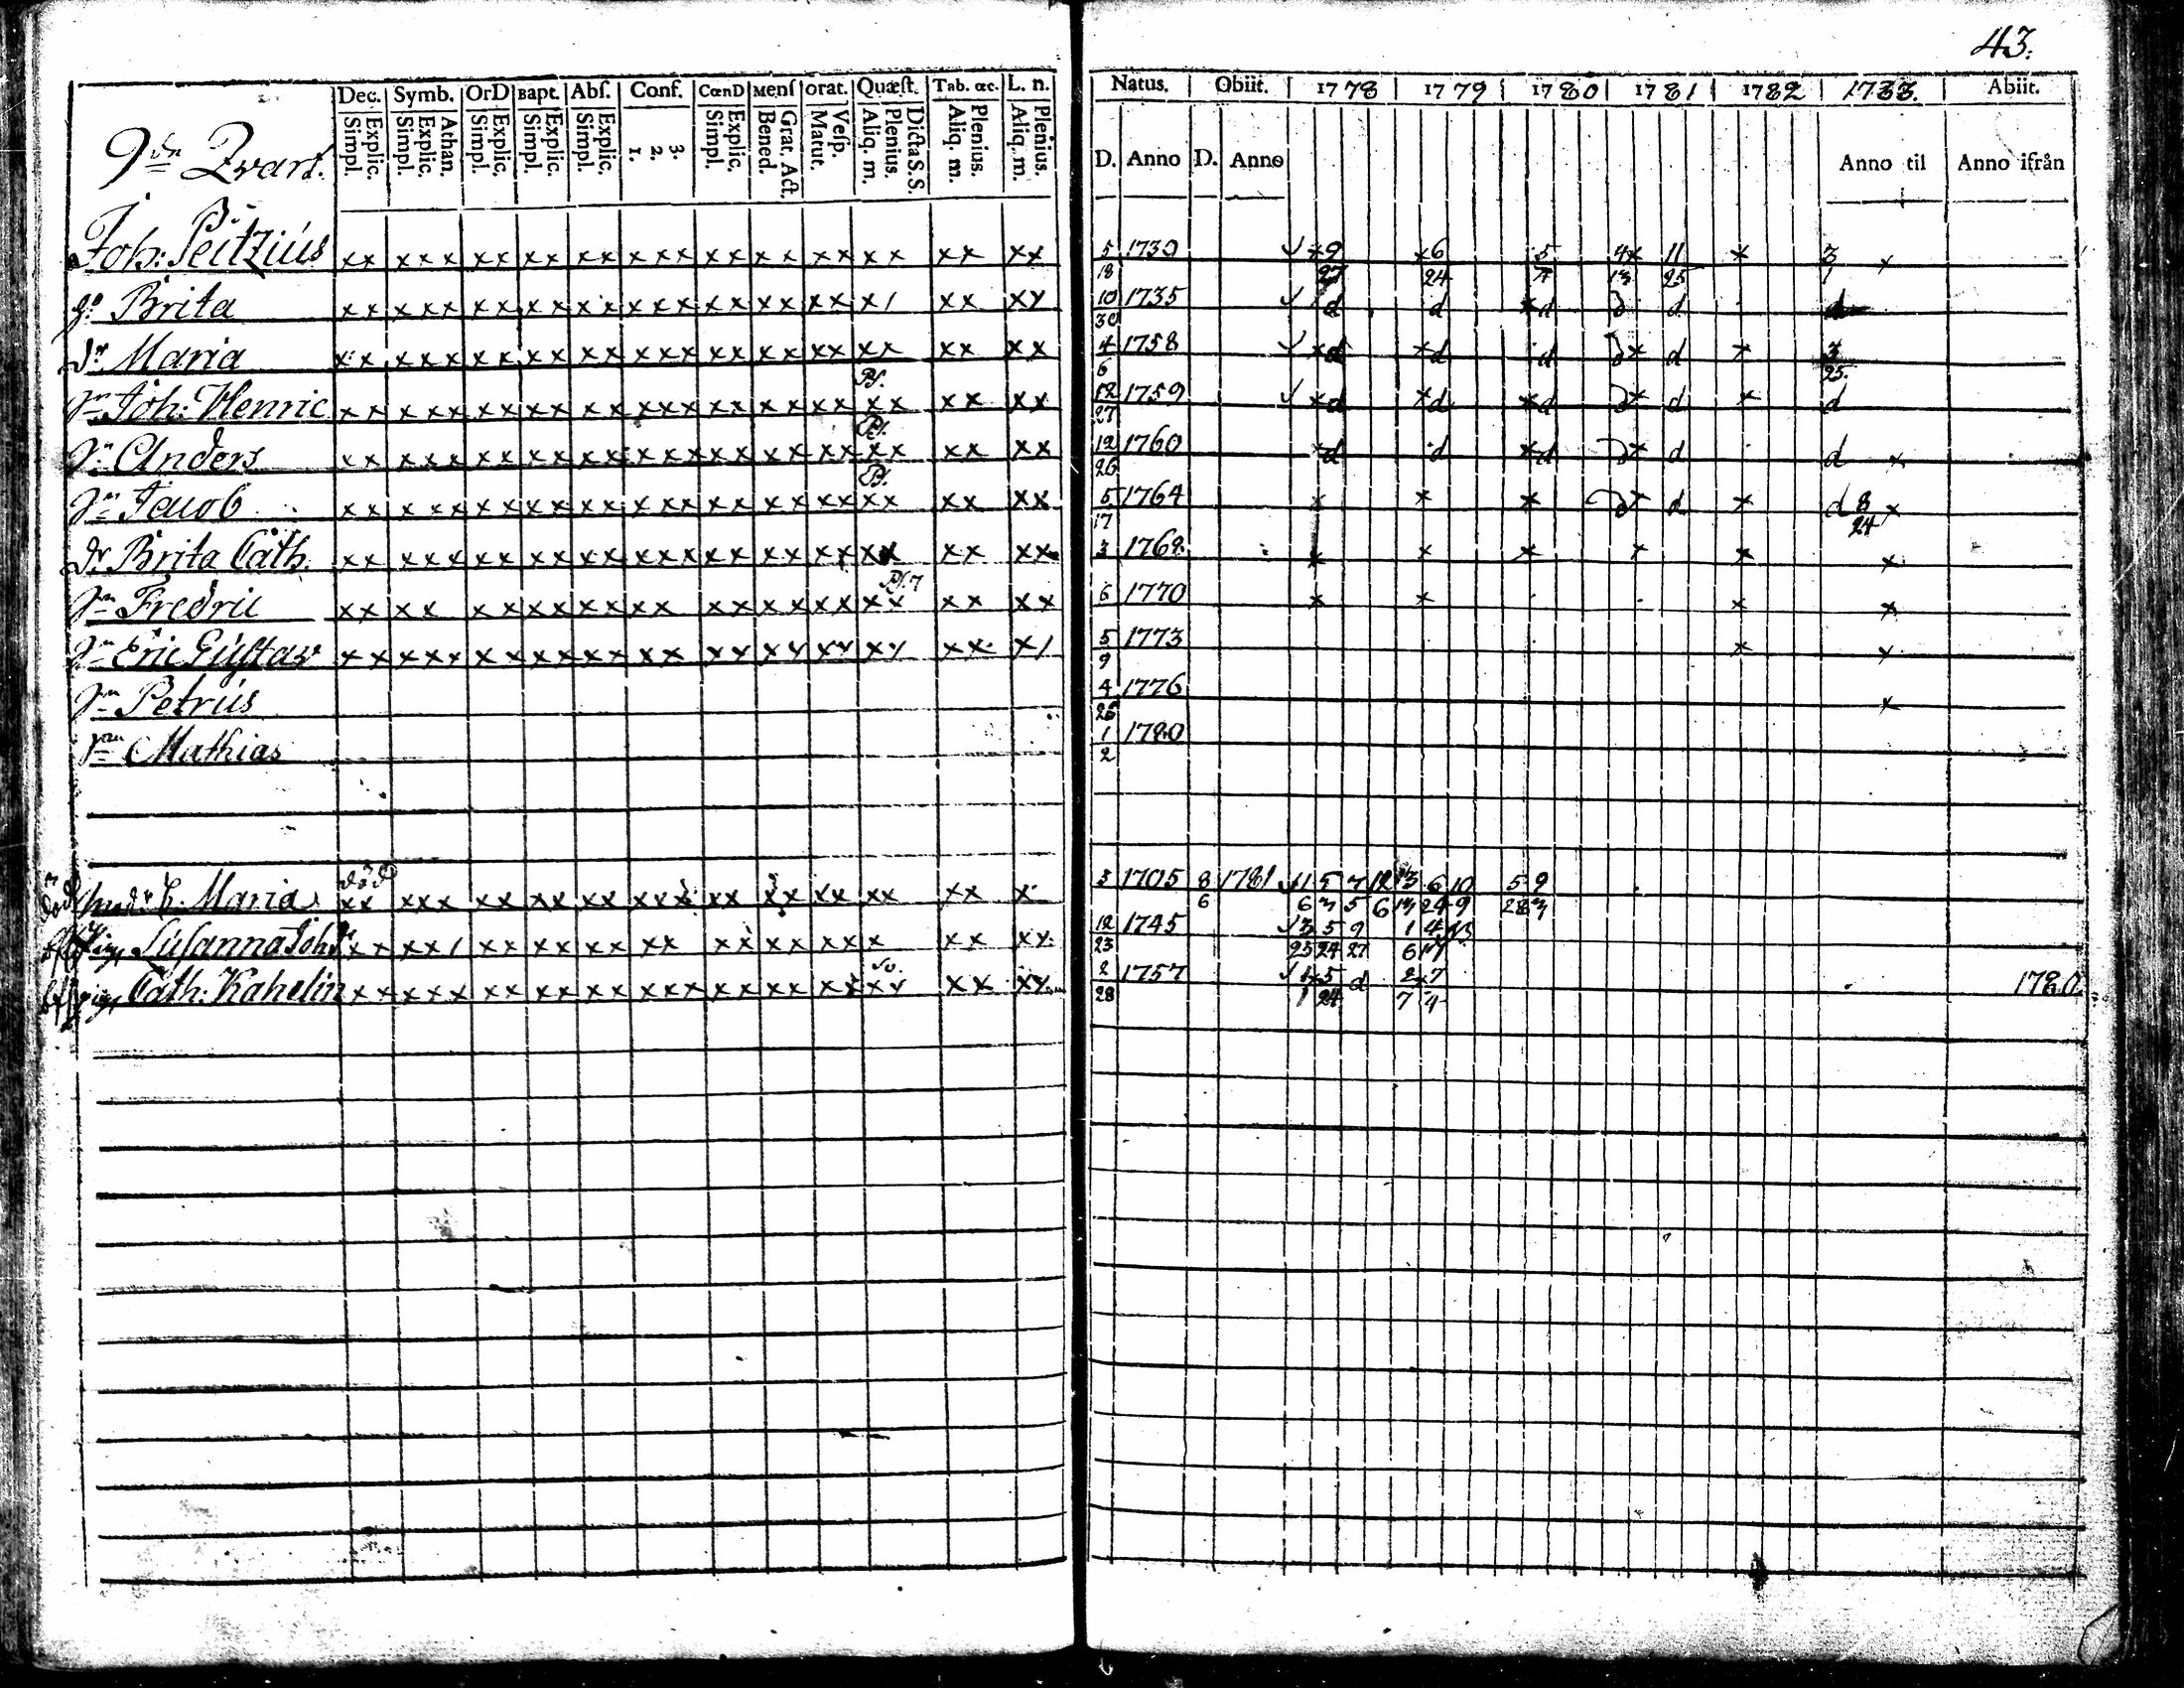 43.
Dec. Symb. OrD Bapt. Abſ. Conf. CœnD Menſ Orat. Quæſt. Tab. œc. L. n. Natus. Obiit. 1778 1779 1780 1781 1782 1783. Abiit.
Explic. Simpl. Athan. Explic. Simpl. Explic. Simpl. Explic. Simpl. Explic. Simpl. 3. 2. 1. Explic. Simpl. Grat. Act. Bened. Veſp. Matut. Dicta S.S. Plenius. Aliq. m. Plenius. Aliq. m. Plenius. Aliq. m. D. Anno D. Anno Anno til Anno ifrån
9de Qvart.
B.
Joh: Peitzius xx xxx xx xx xx xxx xx xx xx xx xx xx 5 18 1730 x 9 27 x 6 24 5 4x 11 25 x 3 1 x
Brita xx xxx xx xx xx xxx xx xx xx x/ xx xx 10 30 1735 d d xd d d
dr Maria xx xxx xx xx xx xxx xx xx xx xx xx xx 4 6 1758 xd xd d dx d x 3 25.
Sn Joh: Henric xx xxx xx xx xx xxx xx xx xx Pſ. xx xx xx 12 27 1759 xd xd xd dx d x d
Sn Anders xx xxx xx xx xx xxx xx xx xx Pſ. xx xx xx 12 26 1760 xd d xd dx d d x
Sn Jacob xx xxx xx xx xx xxx xx xx xx Pſ. xx xx xx 5 17 1764 x x x dx d x d 8 24 x
dr Brita Cath. xx xxx xx xx xx xxx xx xx xx xx xx xx 3 1768. x x x x x x
Sn Fredric xx xx xx xx xx xx xx xx xx xx xx xx 6 1770 x x x x
Sn Eric Guſtav xx xxx xx xx xx xx xx xx xx xx xx x/ 5 9 1773 x x
Sn Petrus 4 26 1776 x
Mathias 1 2 1780
död Maria död xx xxx xx xx xx xxx xx xx xx xx xx x 3 1705 8 6 1781 11 5 7 12 3 6 10 5 9
6 3 5 6 13 24 9 28 3
pig Suſanna Joh xx xx/ xx xx xx xx xx xx xx x xx xx 12 23 1745 3 5 9 1 4
25 24 27 6
pig Cath: Kahelin xx xxx xx xx xx xxx xx xx xx xx xx xx 2 28 1757 1x5 d 2x7 1780.
1 24 7 4